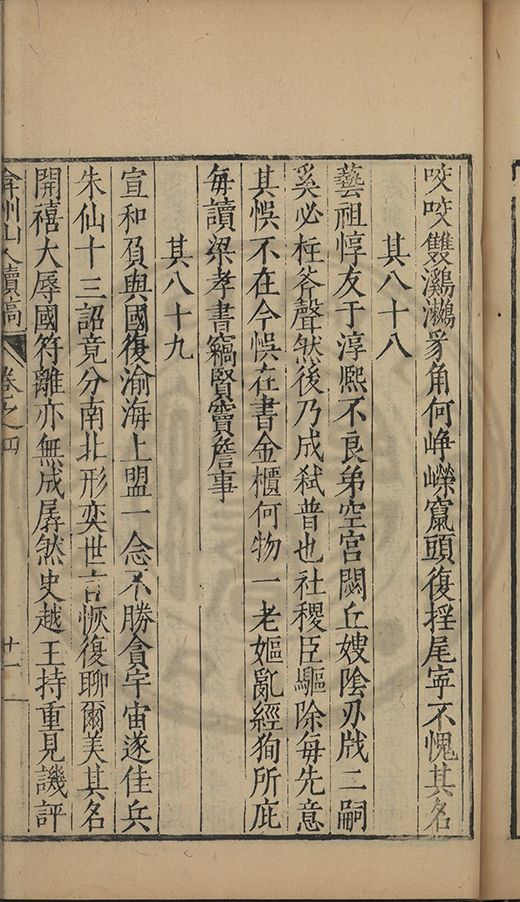 咬咬雙鸂鷘豸角何崢嶸竄頭復揺尾寧不愧其名
其八十八
藝祖惇友于淳熈不良弟空宫閟丘嫂陰刃戕二嗣
奚必柱斧聲然後乃成弑普也社稷臣驅除每先意
其悞不在今悞在書金櫃何物一老嫗亂經狥所庇
每讀梁孝書竊賢竇詹事
其八十九
宣和負與國復渝海上盟一念不勝貪宇宙遂佳兵
朱仙十三詔竟分南北形奕世言恢復聊爾美其名
開禧大辱國符離亦無成孱然史越王持重見譏評
弇州山人續稿 卷之四 廿一